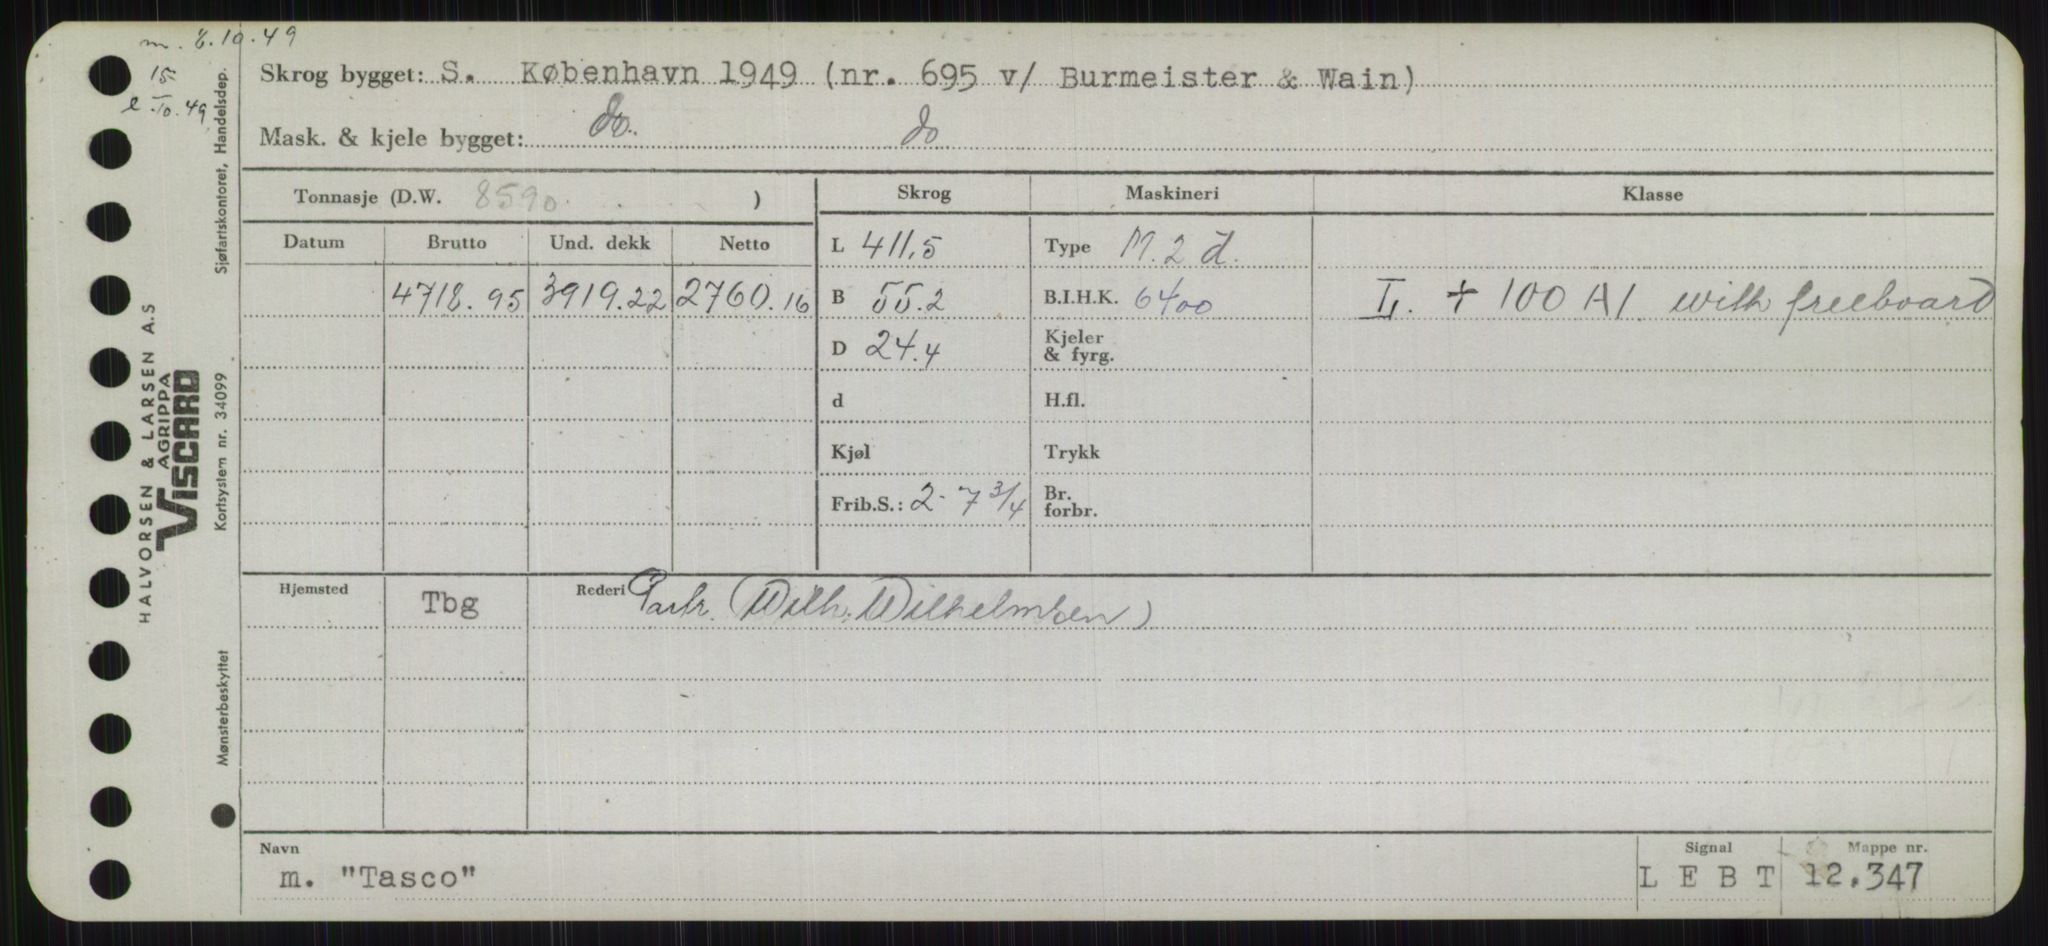 m. 8.10.49
15
e .10.49
Skrog bygget: S. København 1949 (nr. 695 v/ Burmeister & Wain)
Mask. & kjele bygget: do. do
Tonnasje (D.W. 8590 )
Skrog Maskineri Klasse
Datum Brutto Und. dekk Netto
L 411,5 Type M. 2 d.
4718.95 3919.22 2760.16 B 55.2 B.I.H.K. 6400 L. + 100 A1. with freeboard
D 24.4 Kjeler & fyrg.
d H.fl.
Kjøl Trykk
Frib.S.: 2-7 3/4 Br. forbr.
Hjemsted Tbg Rederi Partr. (Wilh. Wilhelmsen)
Navn Signal Mappe nr.
m. "Tasco" L E B T 12.347
Sjøfartskontoret, Handelsdep.
Kortsystem nr. 34099
Mønsterbeskyttet
HALVORSEN & LARSEN A.S
AGRIPPA
VISCARD